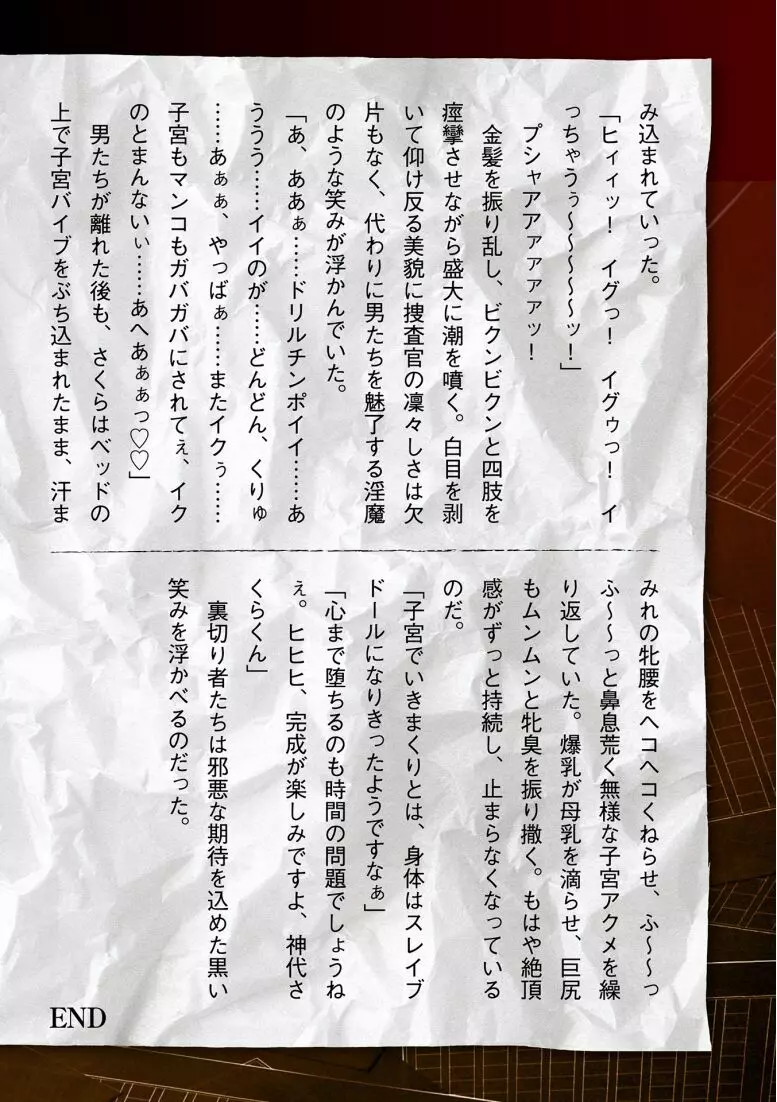 み込まれていった。
「ヒィィッ！　イグっ！　イグゥっ！　イ
っちゃうぅ～～～～～ッ！」
　プシャアアァァァァッ！
　金髪を振り乱し、ビクンビクンと四肢を
痙攣させながら盛大に潮を噴く。白目を剥
いて仰け反る美貌に捜査官の凛々しさは欠
片もなく、代わりに男たちを魅了する淫魔
のような笑みが浮かんでいた。
「あ、ああぁ……ドリルチンポイイ……あ
ううう……イイのが……どんどん、くりゅ
……あぁぁ、やっばぁ……またイクぅ……
子宮もマンコもガバガバにされてぇ、イク
のとまんないぃ……あへあぁぁっ♡♡」
　男たちが離れた後も、さくらはベッドの
上で子宮バイブをぶち込まれたまま、汗ま
みれの牝腰をヘコヘコくねらせ、ふ～～っ
ふ～～っと鼻息荒く無様な子宮アクメを繰
り返していた。爆乳が母乳を滴らせ、巨尻
もムンムンと牝臭を振り撒く。もはや絶頂
感がずっと持続し、止まらなくなっている
のだ。
「子宮でいきまくりとは、身体はスレイブ
ドールになりきったようですなぁ」
「心まで堕ちるのも時間の問題でしょうね
ぇ。ヒヒヒ、完成が楽しみですよ、神代さ
くらくん」
　裏切り者たちは邪悪な期待を込めた黒い
笑みを浮かべるのだった。
END